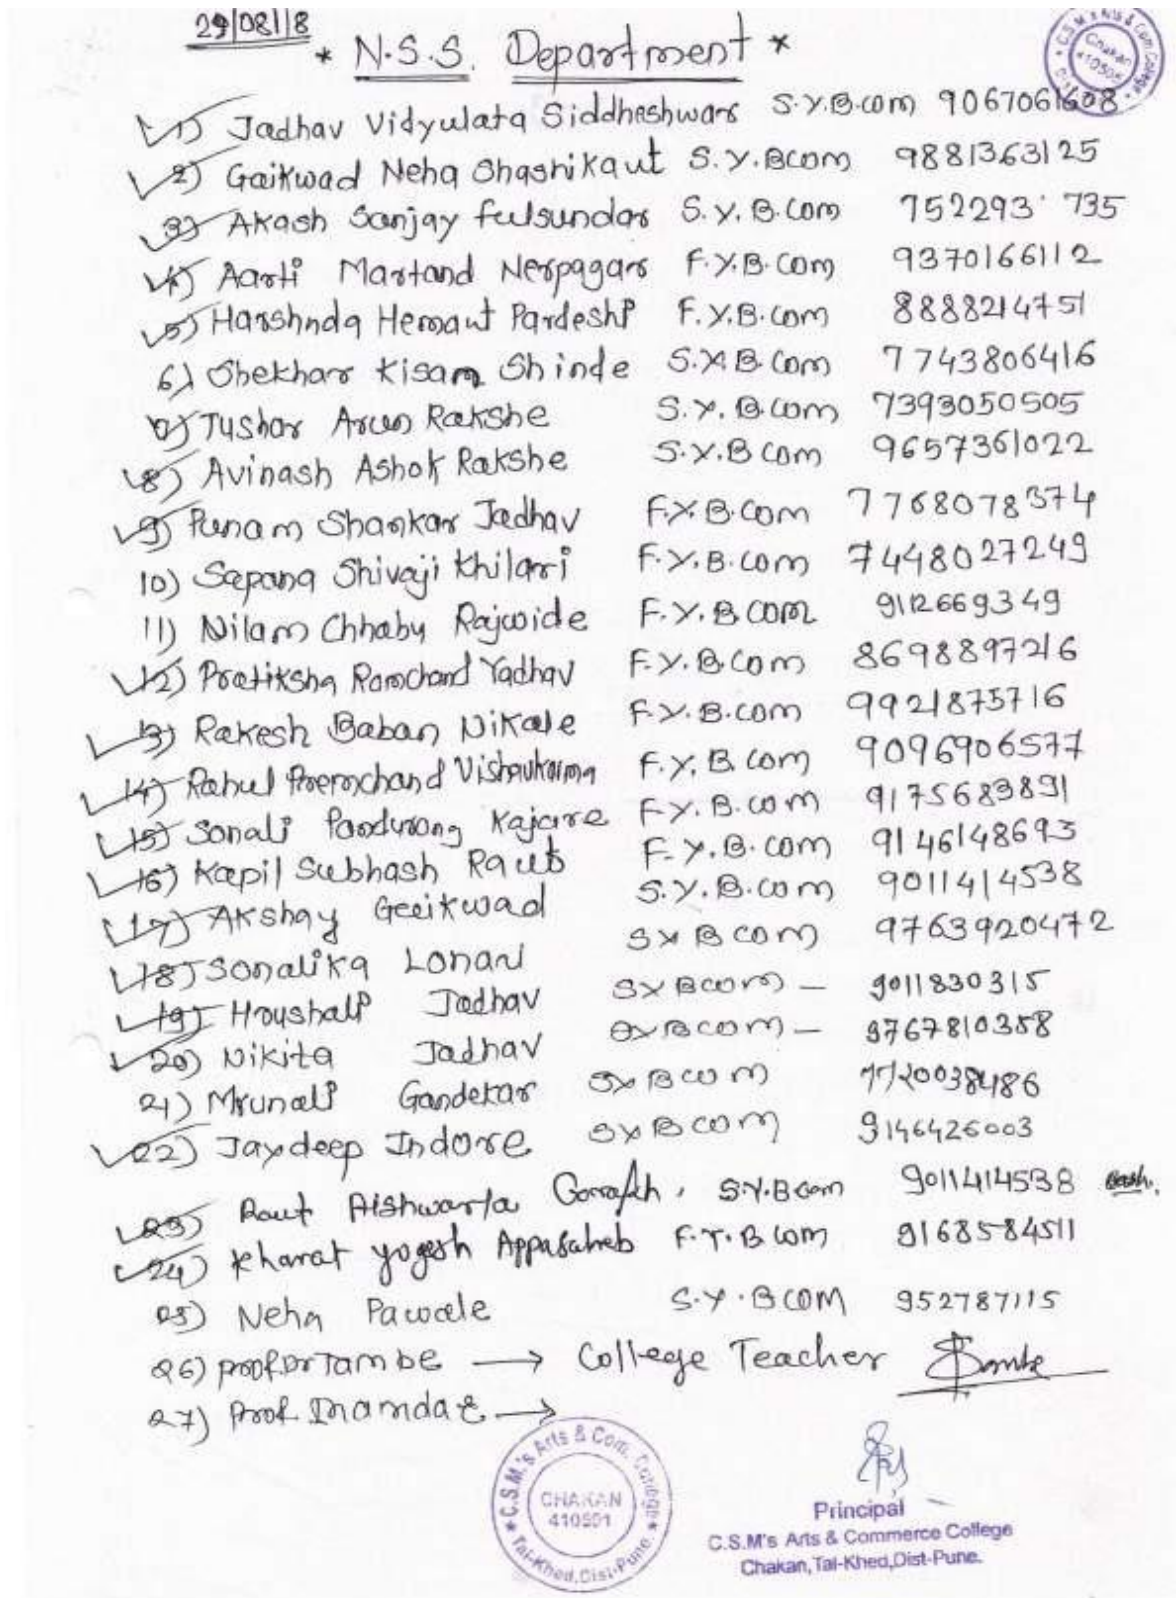 29/08/18
* N.S.S. Department *
C.S.M's Arts & Com College
Chakan
410505
1) Jadhav Vidyulata Siddheshwar S.Y.B.com 9067061608
2) Gaikwad Neha Shashikaut S.Y.Bcom 9881363125
3) Akash Sanjay fulsundar S.Y.B.com 752293 735
4) Aarti Martand Nerpagar F.Y.B.Com 9370166112
5) Harshnda Hemaut Pardeshi F.Y.B.com 8888214751
6) Shekhar Kisam Shinde S.Y.B.com 7743806416
7) Tushar Arun Rakshe S.Y.B.com 7393050505
8) Avinash Ashok Rakshe S.Y.B com 9657361022
9) Punam Shankar Jadhav F.Y.B.com 7768078374
10) Sapana Shivaji Khilari F.Y.B.com 7448027249
11) Nilam Chhabu Rajwide F.Y.B.com 9112669349
12) Pratiksha Ramchand Yadhav F.Y.B.com 8698897216
13) Rakesh Baban Nikale F.Y.B.com 9921875716
14) Rahul Premchand Vishwukarma F.Y.B.com 9096906577
15) Sonali Pandurang Kajare F.Y.B.com 9175683891
16) Kapil Subhash Raut F.Y.B.com 9146148693
17) Akshay Geeikwad S.Y.B.com 9011414538
18) Sonalika Lonari SYBcom 9763920472
19) Hrushali Jadhav SYBcom – 9011830315
20) Nikita Jadhav SYBcom – 9767810358
21) Mrunali Gandekar SYBcom 7720038486
22) Jaydeep Indore SYBcom 9146426003
23) Raut Aishwarya Gorafkh, S.Y.Bcom 9011414538
24) Kharat yogesh Appasaheb F.Y.B.com 9168584511
25) Neha Pawale S.Y.BCOM 952787115
26) prof.Dr Tambe → College Teacher
27) Prof. Inamdar →
C.S.M.'s Arts & Com. College
CHAKAN
410501
Tal-Khed, Dist-Pune.
Principal
C.S.M's Arts & Commerce College
Chakan, Tal-Khed, Dist-Pune.